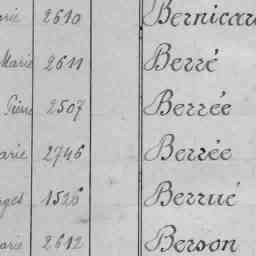 2610 Bernicar
Marie 2611 Berré
Pierre 2507 Berrée
arie 2746 Berrée
rges 1526 Berrué
arie 2612 Berson